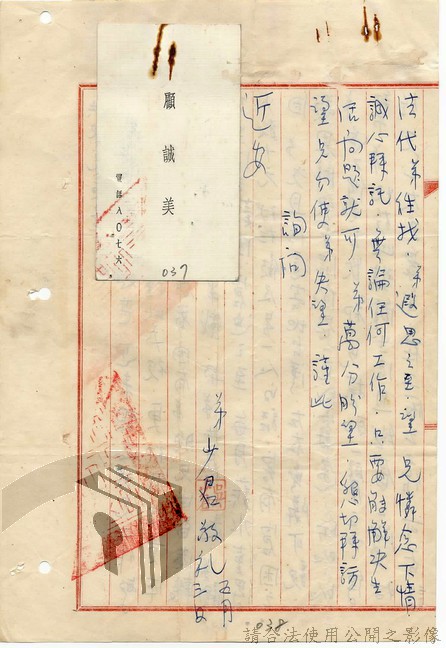 法代弟往找，弟遐思之至，望兄憐念下情，
誠心拜託，無論任何工作，只要能解決生
活問題就可，弟萬分盼望，懇切拜訪，
謹兄勿使弟失望，謹此
詢問
近安
弟少君敬礼 五月三日
顧誠美
電話八〇七六
037
038
請合法使用公開之影像